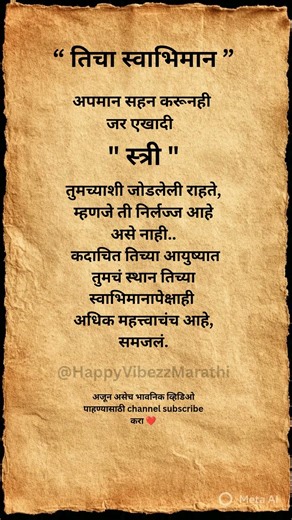 “ तिचा स्वाभिमान ”
अपमान सहन करूनही
जर एखादी
" स्त्री "
तुमच्याशी जोडलेली राहते,
म्हणजे ती निर्लज्ज आहे
असे नाही..
कदाचित तिच्या आयुष्यात
तुमचं स्थान तिच्या
स्वाभिमानापेक्षाही
अधिक महत्त्वाचंच आहे,
समजलं.
@HappyVibezzMarathi
अजून असेच भावनिक व्हिडिओ
पाहण्यासाठी channel subscribe
करा ❤️
Meta AI